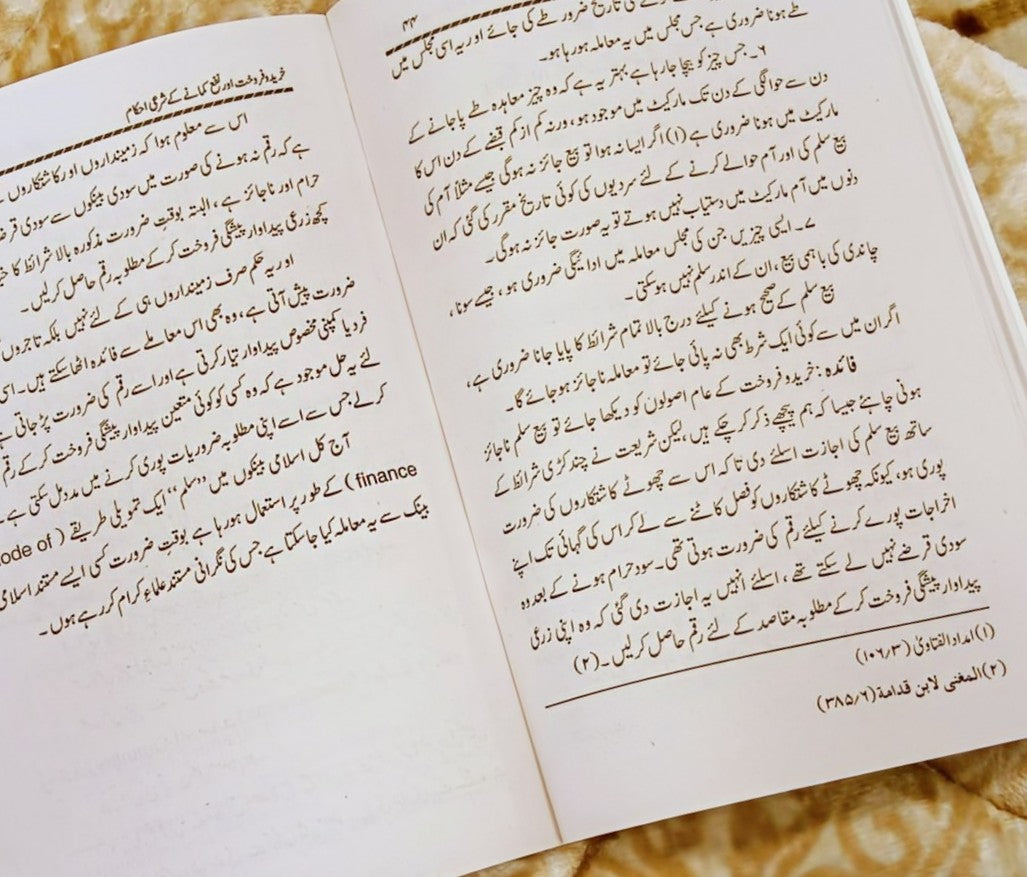 ۴۴
کی تاریخ ضرور طے کی جائے اور یہ اسی مجلس میں
طے ہونا ضروری ہے جس مجلس میں یہ معاملہ ہو رہا ہو۔
۶۔ جس چیز کو بیچا جا رہا ہے بہتر یہ ہے کہ وہ چیز معاہدہ طے پا جانے کے
دن سے حوالگی کے دن تک مارکیٹ میں موجود ہو، ورنہ کم از کم قبضے کے دن اس کا
مارکیٹ میں ہونا ضروری ہے (۱) اگر ایسا نہ ہوا تو بیع جائز نہ ہوگی جیسے مثلاً آم کی
بیع سلم کی اور آم حوالے کرنے کے لئے سردیوں کی کوئی تاریخ مقرر کی گئی کہ ان
دنوں میں آم مارکیٹ میں دستیاب نہیں ہوتے تو یہ صورت جائز نہ ہوگی۔
۷۔ ایسی چیزیں جن کی مجلس معاملہ میں ادائیگی ضروری ہو، جیسے سونا،
چاندی کی باہمی بیع، ان کے اندر سلم نہیں ہوسکتی۔
بیع سلم کے صحیح ہونے کیلئے درج بالا تمام شرائط کا پایا جانا ضروری ہے،
اگر ان میں سے کوئی ایک شرط بھی نہ پائی جائے تو معاملہ ناجائز ہو جائے گا۔
فائدہ: خرید و فروخت کے عام اصولوں کو دیکھا جائے تو بیع سلم ناجائز
ہونی چاہئے جیسا کہ ہم پیچھے ذکر کر چکے ہیں، لیکن شریعت نے چند کڑی شرائط کے
ساتھ بیع سلم کی اجازت اسلئے دی تاکہ اس سے چھوٹے کاشتکاروں کی ضرورت
پوری ہو، کیونکہ چھوٹے کاشتکاروں کو فصل کاٹنے سے لے کر اس کی گہائی تک اپنے
اخراجات پورے کرنے کیلئے رقم کی ضرورت ہوتی تھی۔ سود حرام ہونے کے بعد وہ
سودی قرضے نہیں لے سکتے تھے، اسلئے انہیں یہ اجازت دی گئی کہ وہ اپنی زرعی
پیداوار پیشگی فروخت کر کے مطلوبہ مقاصد کے لئے رقم حاصل کرلیں۔(۲)
(۱) امداد الفتاویٰ (۱۰۶/۳)
(۲) المغنی لابن قدامة (۳۸۵/۶)
خرید و فروخت اور نفع کمانے کے شرعی احکام
اس سے معلوم ہوا کہ زمینداروں اور کاشتکاروں
ہے کہ رقم نہ ہونے کی صورت میں سودی بینکوں سے سودی
حرام اور ناجائز ہے، البتہ بوقتِ ضرورت مذکورہ بالا شرائط کا
کچھ زرعی پیداوار پیشگی فروخت کر کے مطلوبہ رقم حاصل کرلیں۔
اور یہ حکم صرف زمینداروں ہی کے لئے نہیں بلکہ تاجروں
ضرورت پیش آتی ہے، وہ بھی اس معاملے سے فائدہ اٹھا سکتے ہیں۔ اسی
فرد یا کمپنی مخصوص پیداوار تیار کرتی ہے اور اسے رقم کی ضرورت پڑ جاتی ہے
لئے یہ حل موجود ہے کہ وہ کسی کو کوئی متعین پیداوار پیشگی فروخت کر کے رقم
کرلے جس سے اسے اپنی مطلوبہ ضروریات پوری کرنے میں مدد مل سکتی ہے
آج کل اسلامی بینکوں میں ’’سلم‘‘ ایک تمویلی طریقے ( ode of
finance ) کے طور پر استعمال ہو رہا ہے بوقتِ ضرورت کسی ایسے مستند اسلامی
بینک سے یہ معاملہ کیا جاسکتا ہے جس کی نگرانی مستند علماءِ کرام کر رہے ہوں۔